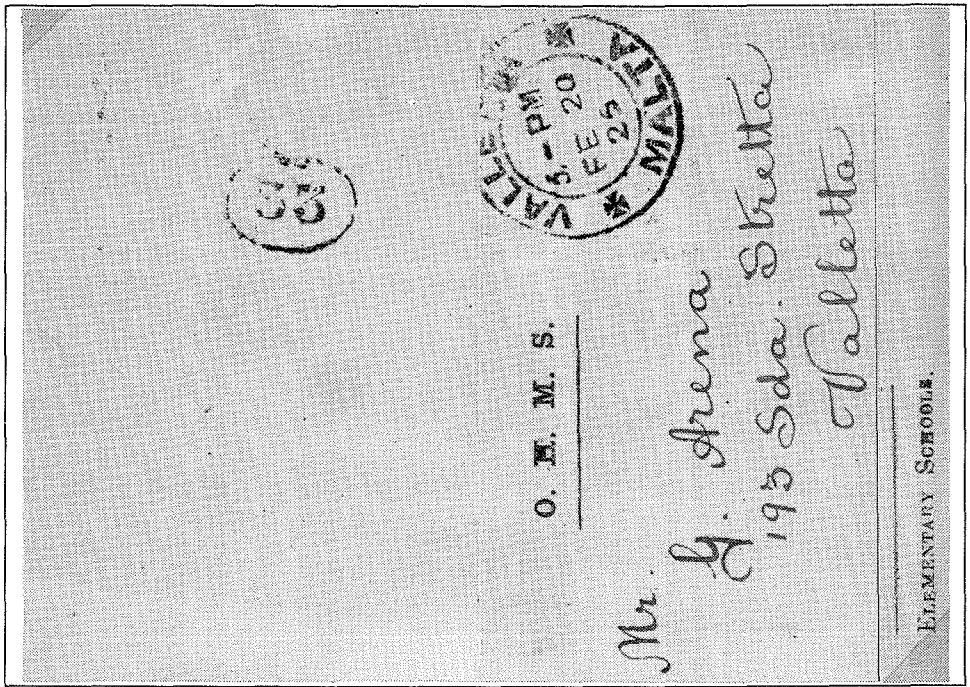 VALLE
MALTA
5-PM
FE 20
25
O. H. M. S.
Mr. G. Arena
193 Sda. Stretta
Valletta
ELEMENTARY SCHOOLS.